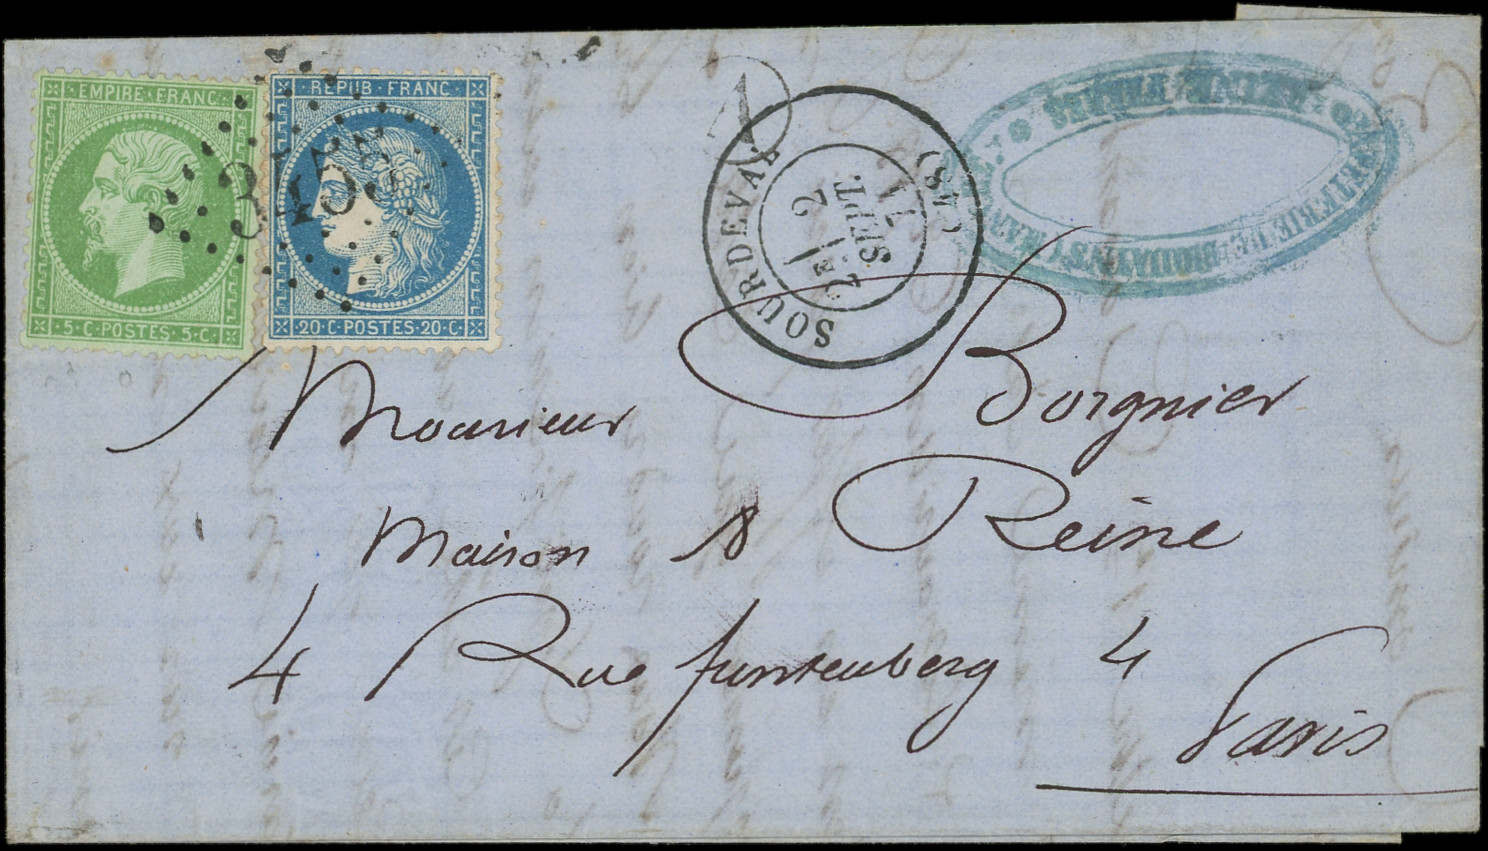 EMPIRE FRANC
5 • C • POSTES • 5 • C
REPUB • FRANC
20 • C • POSTES • 20 • C
A
SOURDEVAL (48)
2E
2
SEPT.
71
Monsieur Borgnier
Maison Reine
4 Rue funtenberg 4
Paris